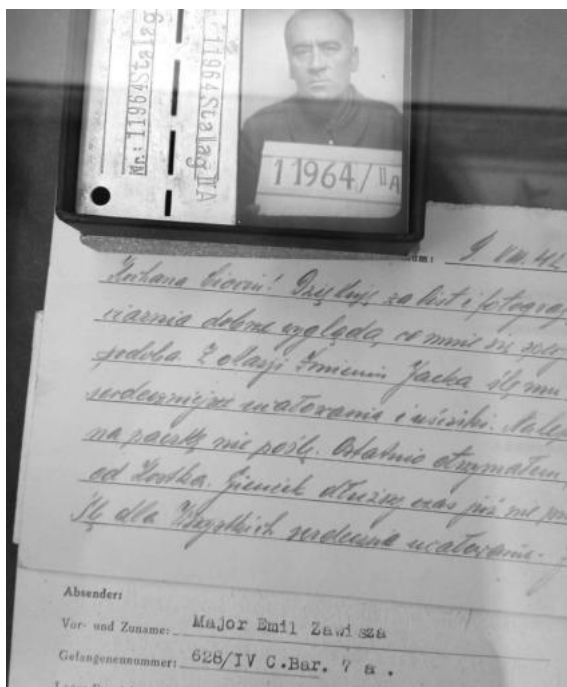 Nr.: 11964 Stalag
11964 Stalag IIA
11964/IIA
9 VIII. 42
Kochana Dziękuję za list i fotogra
dobrze wygląda, co mnie się
podoba. Z okazji Imienin Jacka ślę mu
serdeczniejsze ucałowania i uściski.
na paczkę nie poślę. Ostatnio otrzymałem
od Kostka. dłuższy czas już nie
Ślę dla Wszystkich serdeczne ucałowania.
Absender:
Vor- und Zuname: Major Emil Zawisza
Gefangenennummer: 628/IV C.Bar. 7 a .